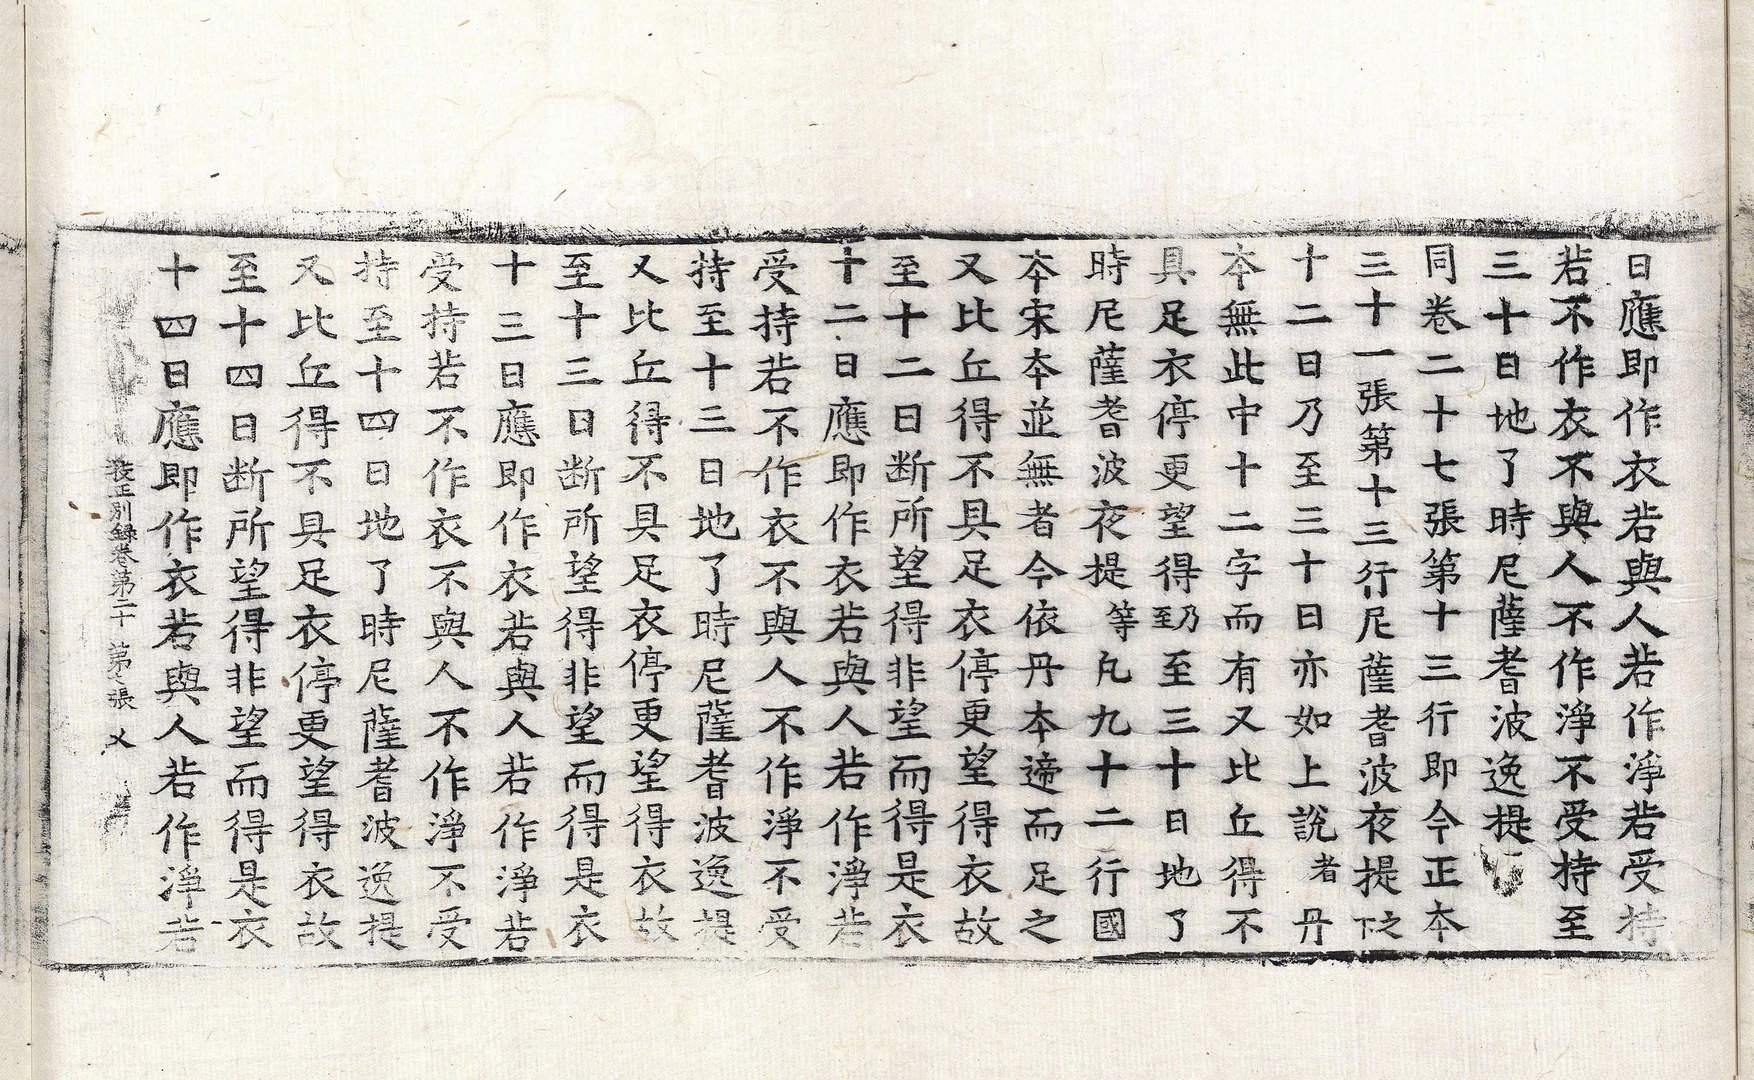 日應即作衣若與人若作淨若受持
若不作衣不與人不作淨不受持至
三十日地了時尼薩耆波逸提
同卷二十七張第十三行即今正本
三十一張第十三行尼薩耆波夜提之下
十二日乃至三十日亦如上說者丹
本無此中十二字而有又比丘得不
具足衣停更望得乃至至三十日地了
時尼薩耆波夜提等凡九十二行國
本宋本並無者今依丹本遞而足之
又比丘得不具足衣停更望得衣故
至十二日断所望得非望而得是衣
十二日應即作衣若與人若作淨若
受持若不作衣不與人不作淨不受
持至十三日地了時尼薩耆波逸提
又比丘得不具足衣停更望得衣故
至十三日断所望得非望而得是衣
十三日應即作衣若與人若作淨若
受持若不作衣不與人不作淨不受
持至十四日地了時尼薩耆波逸提
又比丘得不具足衣停更望得衣故
至十四日断所望得非望而得是衣
校正別録卷第二十 第七張 乂
十四日應即作衣若與人若作淨若